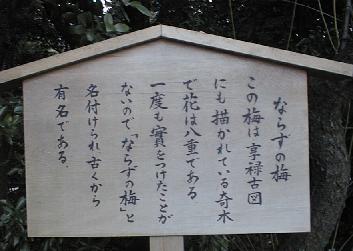 ならずの梅
この梅は享禄古図
にも描かれている奇木
で花は八重である
一度も實をつけたことが
ないので、「ならずの梅」と
名付けられ古くから
有名である。